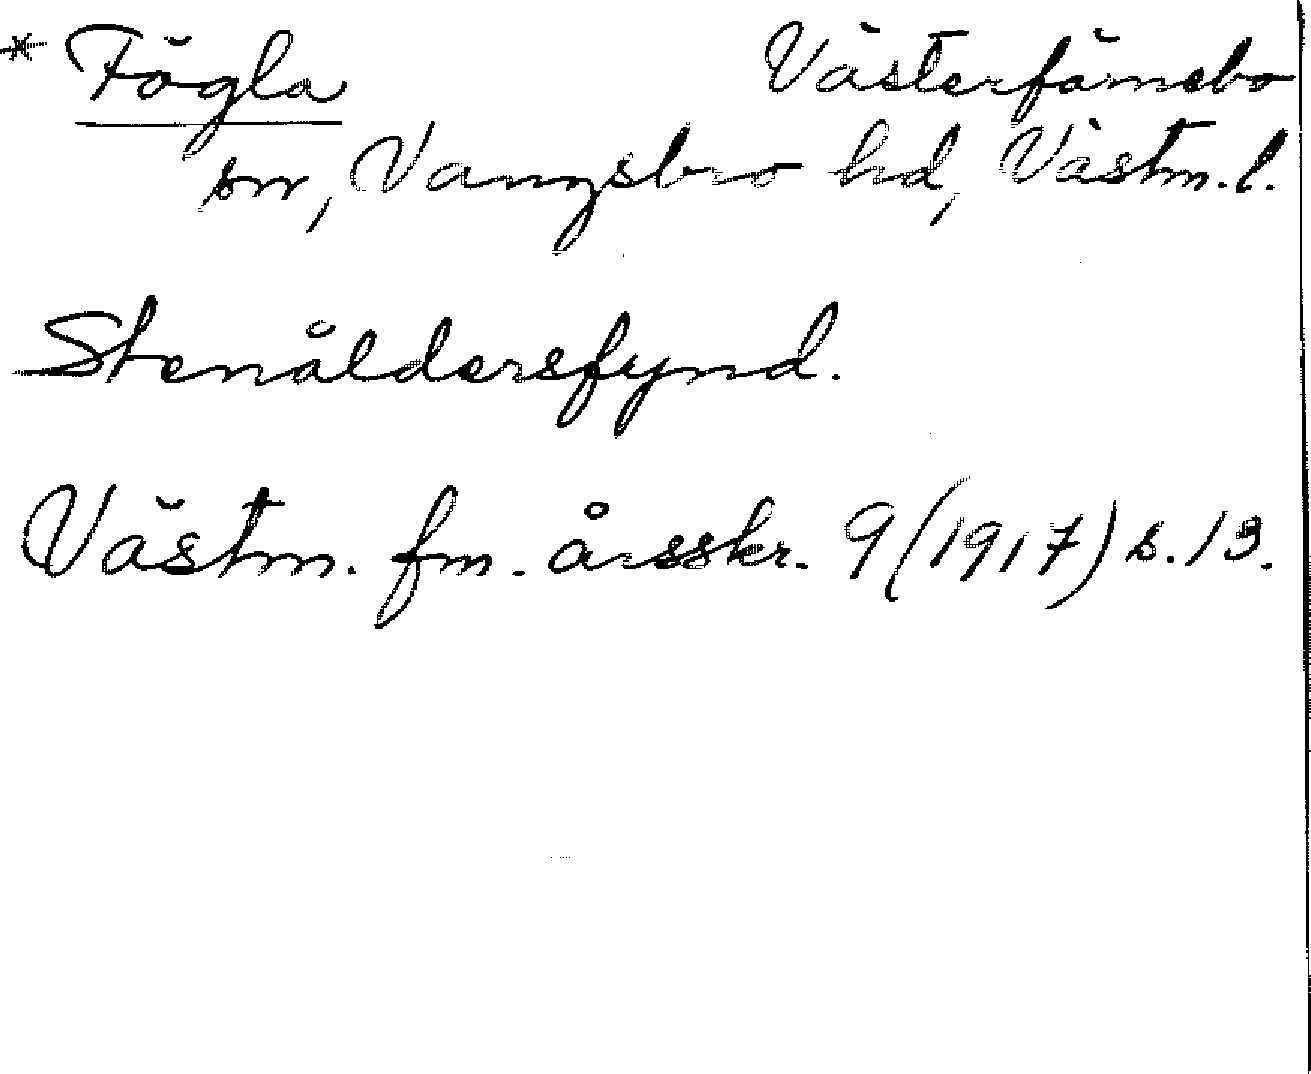 * Fögla Västerfärnebo
sn, Vangsbro hd, Västm. l.
Stenåldersfynd.
Västm. fm. årsskr. 9 (1917) s. 13.